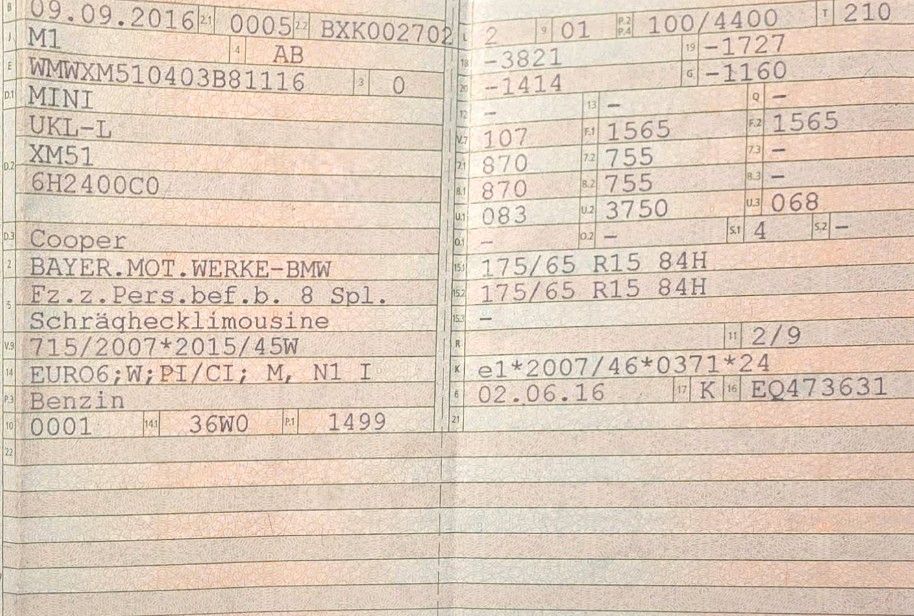 B 09.09.2016 2.1 0005 2.2 BXK002702
J M1 4 AB
E WMWXM510403B81116 3 0
D.1 MINI
UKL-L
D.2 XM51
6H2400C0
D.3 Cooper
2 BAYER.MOT.WERKE-BMW
5 Fz.z.Pers.bef.b. 8 Spl.
Schräghecklimousine
V.9 715/2007*2015/45W
14 EURO6;W;PI/CI; M, N1 I
P.3 Benzin
10 0001 14.1 36W0 P.1 1499
22
L 2 9 01 P.2 P.4 100/4400 T 210
18 -3821 19 -1727
20 -1414 G -1160
12 - 13 - Q -
V.7 107 F.1 1565 F.2 1565
7.1 870 7.2 755 7.3 -
8.1 870 8.2 755 8.3 -
U.1 083 U.2 3750 U.3 068
O.1 - O.2 - S.1 4 S.2 -
15.1 175/65 R15 84H
15.2 175/65 R15 84H
15.3 -
R 11 2/9
K e1*2007/46*0371*24
6 02.06.16 17 K 16 EQ473631
21